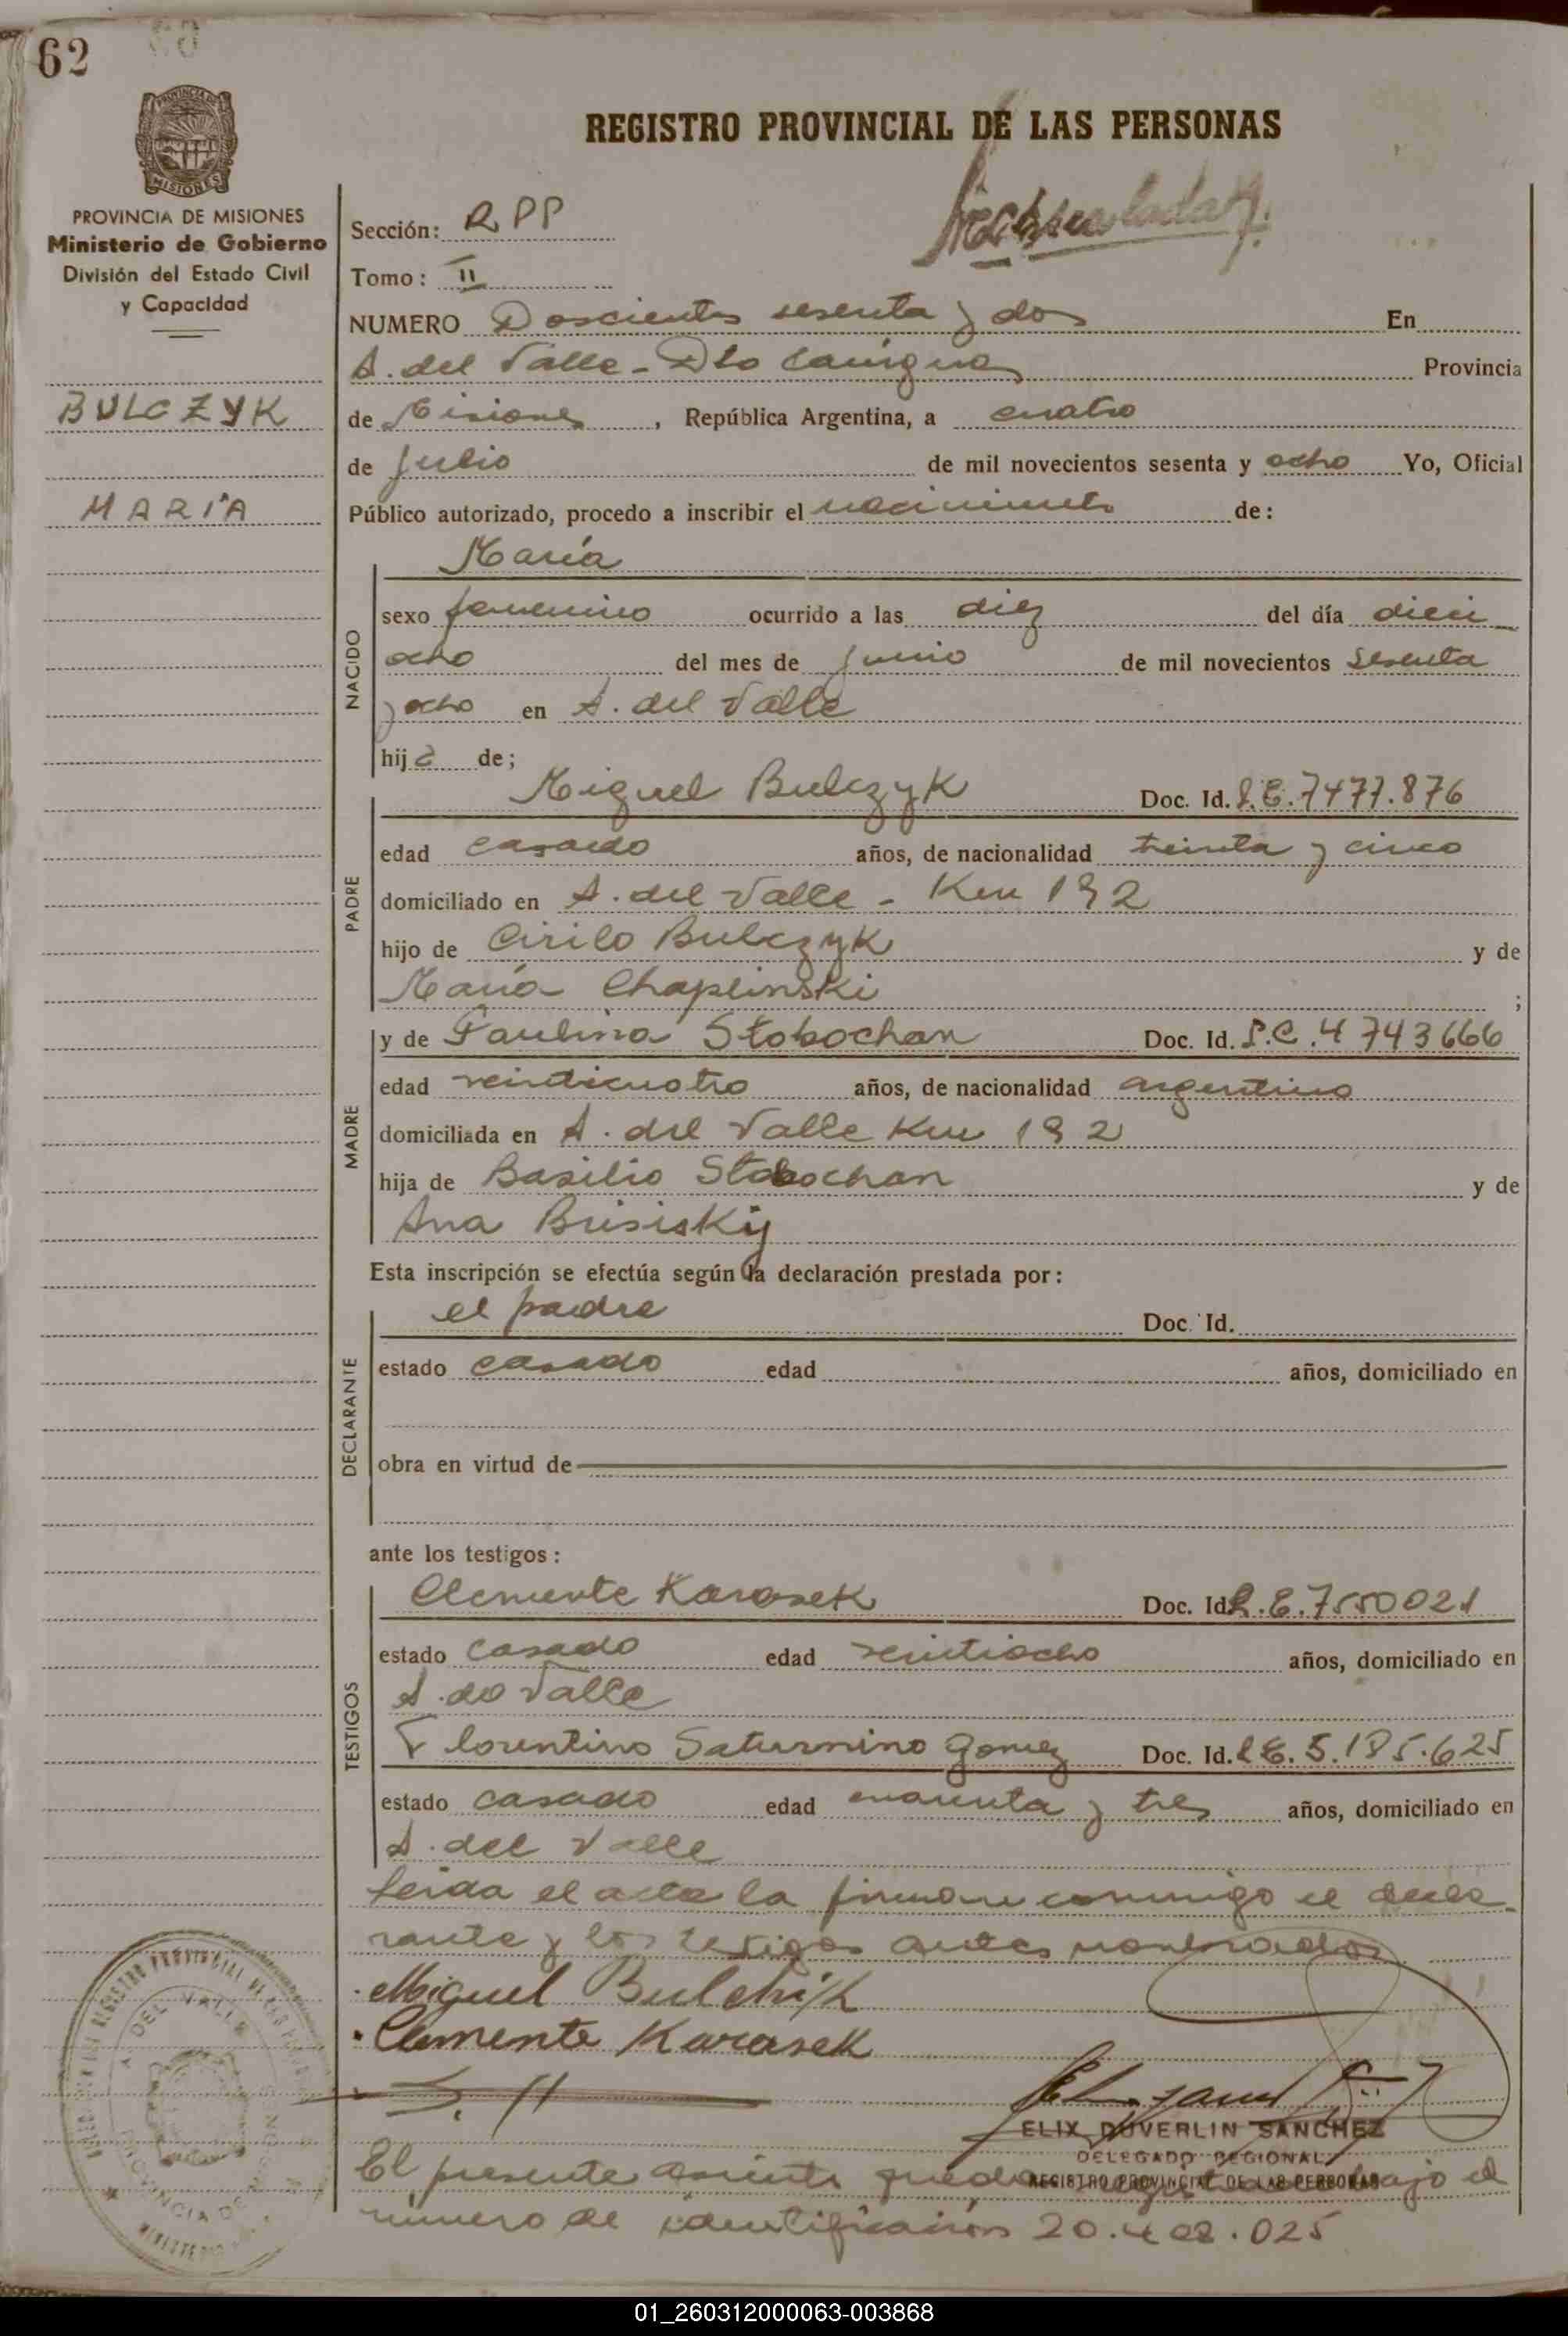 62
REGISTRO PROVINCIAL DE LAS PERSONAS
MISIONES
PROVINCIA DE MISIONES
Ministerio de Gobierno
División del Estado Civil
y Capacidad
BULCZYK
MARÍA
Sección: R PP
Tomo: II
NUMERO Doscientos sesenta y dos En
A. del Valle - Dto Cainguas Provincia
de Misiones, República Argentina, a cuatro
de Julio de mil novecientos sesenta y ocho Yo, Oficial
Público autorizado, procedo a inscribir el nacimiento de:
María
NACIDO
sexo femenino ocurrido a las diez del día dieci
ocho del mes de junio de mil novecientos sesenta
y ocho en A. del Valle
hija de;
PADRE
Miguel Bulczyk Doc. Id. L.E. 7477.876
edad casado años, de nacionalidad treinta y cinco
domiciliado en A. del Valle - Km 192
hijo de Cirilo Bulczyk y de
María Chaplinski ;
MADRE
y de Paulina Stobochan Doc. Id. L.C. 4743666
edad veinticuatro años, de nacionalidad argentina
domiciliada en A. del Valle Km 192
hija de Basilio Stobochan y de
Ana Brisiskij
Esta inscripción se efectúa según la declaración prestada por:
DECLARANTE
el padre Doc. Id.
estado casado edad años, domiciliado en
obra en virtud de
ante los testigos:
TESTIGOS
Clemente Karasek Doc. Id L.E. 7550021
estado casado edad veintiocho años, domiciliado en
A. do Valle
Florentino Saturnino Gomez Doc. Id. L E. 5.185.625
estado casado edad cuarenta y tres años, domiciliado en
A. del Valle
Leida el acta la firman conmigo el decla
rante y los testigos antes nombrados
Miguel Bulchik
Clemente Karasek
ELIX DUVERLIN SANCHEZ
DELEGADO REGIONAL
REGISTRO PROVINCIAL DE LAS PERSONAS
El presente asiento queda bajo el
número de identificación 20.408.025
01_260312000063-003868